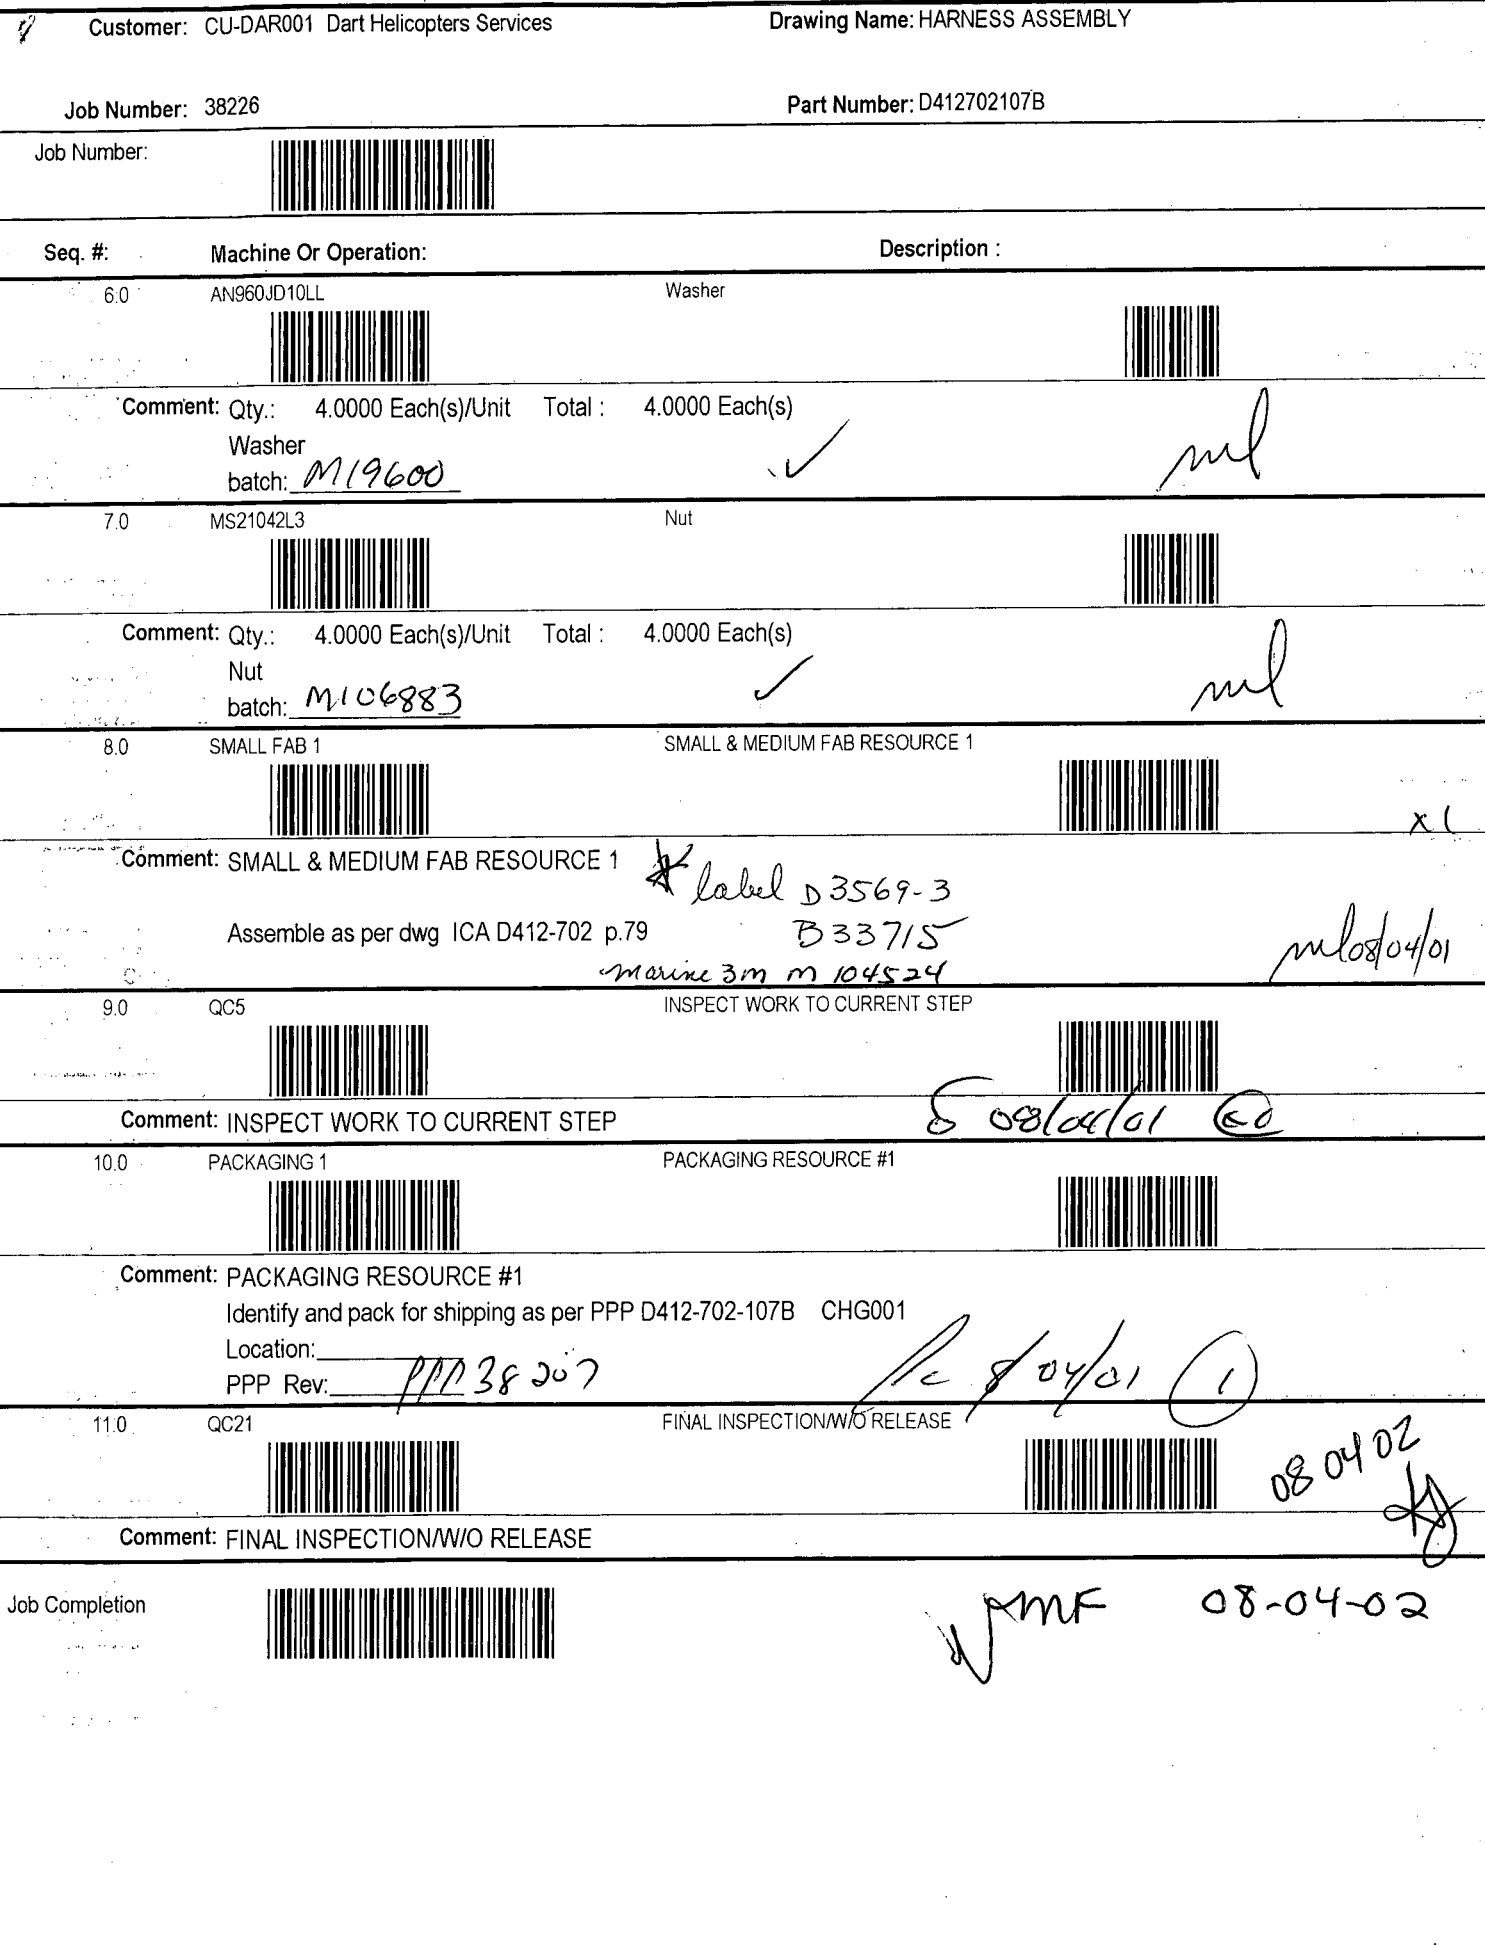 Customer: CU-DAR001 Dart Helicopters Services Drawing Name: HARNESS ASSEMBLY
Job Number: 38226 Part Number: D412702107B
Job Number:
Seq. #: Machine Or Operation: Description :
6.0 AN960JD10LL Washer
Comment: Qty.: 4.0000 Each(s)/Unit Total : 4.0000 Each(s)
Washer
batch: M19600 ml
7.0 MS21042L3 Nut
Comment: Qty.: 4.0000 Each(s)/Unit Total : 4.0000 Each(s)
Nut
batch: M106883 ml
8.0 SMALL FAB 1 SMALL & MEDIUM FAB RESOURCE 1
x1
Comment: SMALL & MEDIUM FAB RESOURCE 1 label D3569-3
Assemble as per dwg ICA D412-702 p.79 B33715 ml 08/04/01
marine 3m m 104524
9.0 QC5 INSPECT WORK TO CURRENT STEP
Comment: INSPECT WORK TO CURRENT STEP 08/04/01
10.0 PACKAGING 1 PACKAGING RESOURCE #1
Comment: PACKAGING RESOURCE #1
Identify and pack for shipping as per PPP D412-702-107B CHG001
Location:
PPP Rev: PPP 38207 8/04/01 1
11.0 QC21 FINAL INSPECTION/W/O RELEASE
08 04 02
Comment: FINAL INSPECTION/W/O RELEASE
Job Completion MF 08-04-02